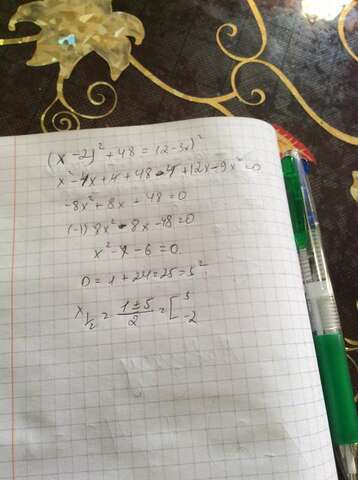 (x-2)² + 48 = (2-3x)²
x² - 4x + 4 + 48 - 4 + 12x - 9x² = 0
-8x² + 8x + 48 = 0
(-1) 8x² - 8x - 48 = 0
x² - x - 6 = 0.
D = 1 + 24 = 25 = 5²
x½ = (1±5)/2 = [ 3
-2